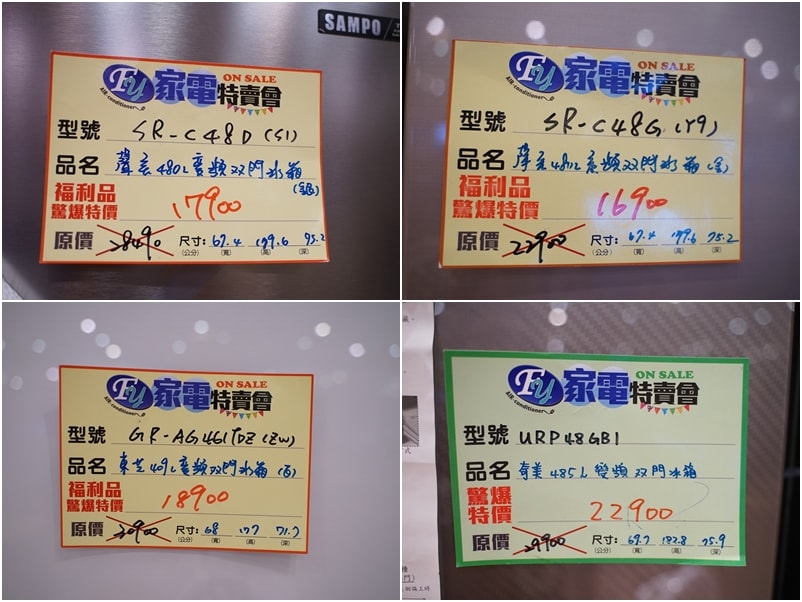 SAMPO
FU 家電特賣會 ON SALE
AIR-conditioner
型號 SR-C48D(S1)
品名 聲寶480L變頻双門冰箱
(銀)
福利品
驚爆特價 17900
原價 28490 尺寸: 67.4 179.6 75.2
(公分) (寬) (高) (深)
FU 家電特賣會 ON SALE
AIR-conditioner
型號 SR-C48G(Y9)
品名 聲宝480L變頻双門冰箱(金)
福利品
驚爆特價 16900
原價 22900 尺寸: 67.4 179.6 75.2
(公分) (寬) (高) (深)
FU 家電特賣會 ON SALE
AIR-conditioner
型號 GR-AG461TDZ(ZW)
品名 東芝409L變頻双門冰箱(白)
福利品
驚爆特價 18900
原價 30900 尺寸: 68 177 71.7
(公分) (寬) (高) (深)
FU 家電特賣會 ON SALE
AIR-conditioner
型號 URP48GB1
品名 奇美485L變頻双門冰箱
驚爆
特價 22900
原價 29900 尺寸: 69.7 182.8 75.9
(公分) (寬) (高) (深)